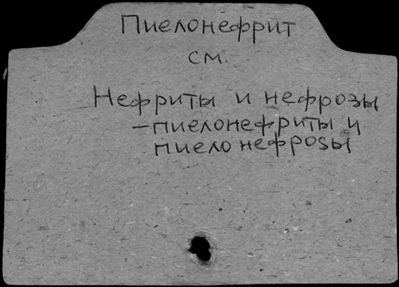 Пиелонефрит
см.
Нефриты и нефрозы
-пиелонефриты и
пиелонефрозы